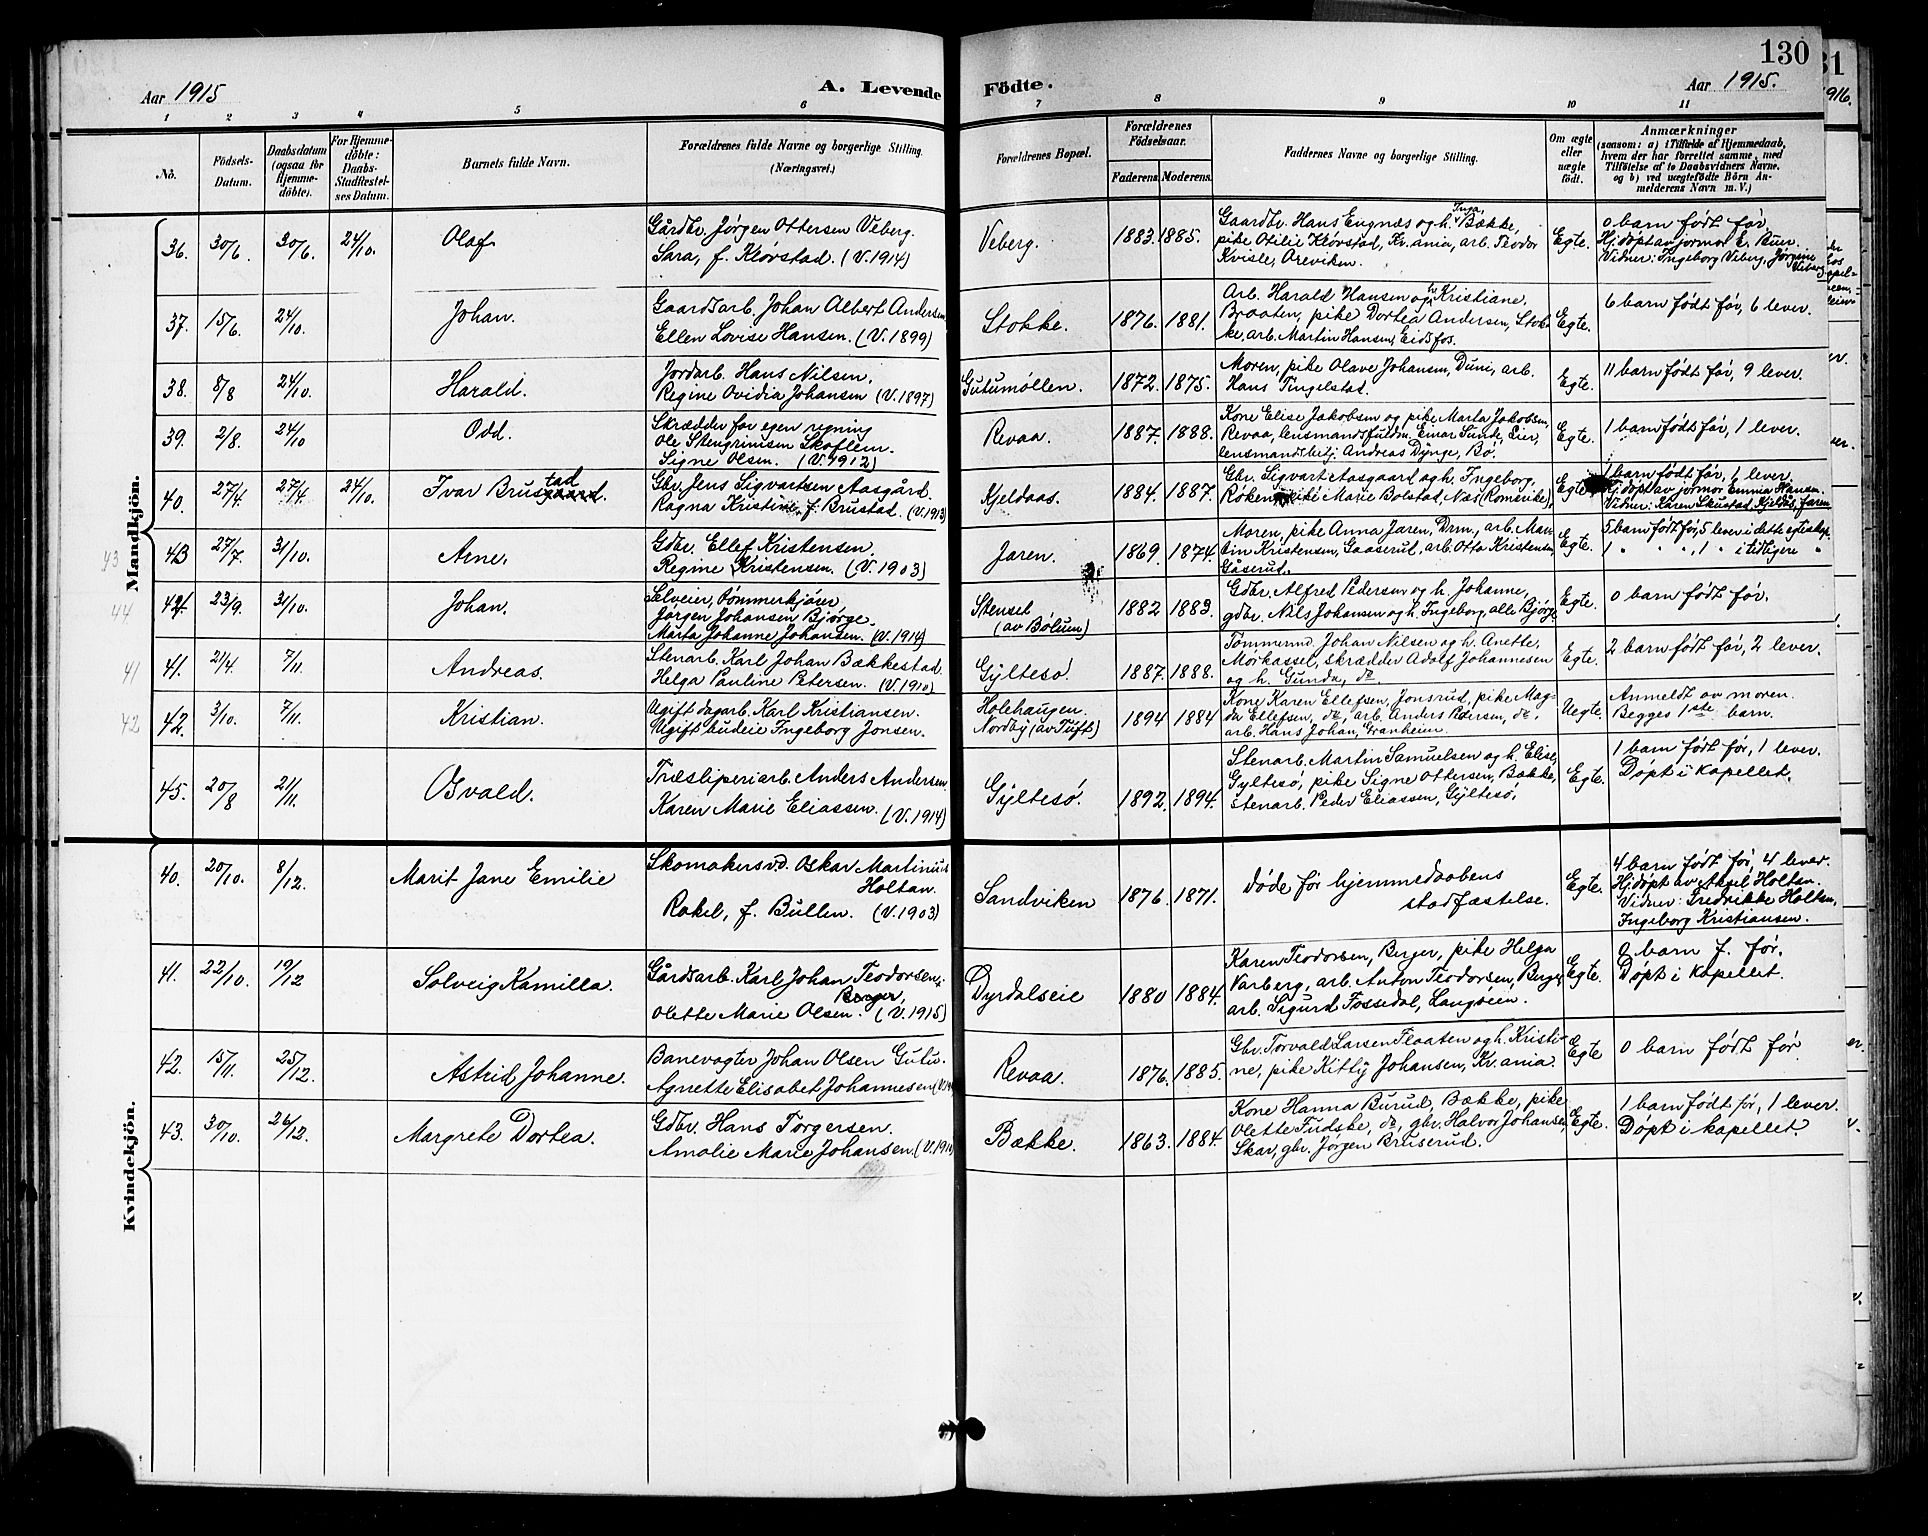 130
31
Aar 1915
A. Levende
Födte.
Aar 1915.
1916.
1 2 3 4 5 6 7 8 9 10 11
No.
Födsels-
Datum.
Daabsdatum
(ogsaa for
Hjemme-
döbte).
For Hjemme-
döbte:
Daabs-
Stadfæstel-
ses Datum.
Barnets fulde Navn.
Forældrenes fulde Navne og borgerlige Stilling.
(Næringsvei.)
Forældrenes Bopæl.
Forældrenes
Födselsaar.
Faderens. Moderens.
Faddernes Navne og borgerlige Stilling.
Om ægte
eller
uægte
födt.
Anmærkninger
(saasom: a) i Tilfælde af Hjemmedaab,
hvem der har forrettet samme, med
Tilföielse af to Daabsvidners Navne.
og b) ved uægtefödte Börn An-
melderens Navn m. V.)
Mandkjön.
36. 30/6. 30/6. 24/10. Olaf.
Gårdbr. Jørgen Ottersen Veberg.
Sara, f. Kløvstad. (V. 1914)
Veberg. 1883. 1885.
Gaardbr. Hans Engnæs og h. Inga, Bække,
pike Otilie Kløvstad, Kr.ania, arb. Teodor
Kvisle, Oreviken.
Egte.
0 barn født før,
Hjdøpt av jormor E. Buer.
Vidner: Ingeborg Veberg, Jørgine
Veberg
37. 15/6. 24/10. Johan.
Gaardsarb. Johan Albert Andersen
Ellen Lovise Hansen. (V. 1899)
Stokke. 1876. 1881.
Arb. Harald Hansen og h. Kristiane,
Braaten, pike Dortea Andersen, Stok-
ke, arb. Martin Hansen, Eidsfos.
Egte.
6 barn født før, 6 lever.
38. 8/8 24/10. Harald.
Jordarb. Hans Nilsen,
Regine Ovidia Johansen (V. 1897)
Gutumøllen. 1872. 1875.
Moren, pike Olave Johansen, Duni, arb.
Hans Tingelstad.
Egte.
11 barn født før, 9 lever.
39. 2/8. 24/10 Odd.
Skrædder for egen regning
Ole Stengrimsen Skoflem.
Signe Olsen. (V. 1912)
Revaa. 1887. 1888.
Kone Elise Jakobsen og pike Marta Jakobsen,
Revaa, lensmandsfuldm. Einar Sunde, Eier,
lensmandsbetj. Andreas Dynge, Bø.
Egte.
1 barn født før, 1 lever.
40. 27/4 27/4. 24/10. Ivar Brusgaard. tad
Gbr. Jens Sigvartsen Aasgård.
Ragna Kristine, f. Brustad. (V. 1913)
Kjeldaas. 1884. 1887.
Gbr. Sigvart Aasgaard og h. Ingeborg,
Røken, pike Marie Bolstad, Næs (Romerike),
Egte
1 barn født før, 1 lever.
Hjdøpt av jormor Emma Hansen.
Vidner: Karen Skustad, Kjeldås, Jaren
43 43 27/7. 31/10. Arne.
Gdbr. Ellef Kristensen.
Regine Kristensen. (V. 1903)
Jaren. 1869. 1874.
Moren, pike Anna Jaren, Drm., arb. Mar-
tin Kristensen, Gaaserud, arb. Otto Kristensen,
Gåserud.
Egte.
5 barn født før, 5 lever i dette egteskap.
1 " " " , 1 " i tidligere "
44 23/9. 31/10. Johan.
Selveier, tømmerkjører
Jørgen Johansen Bjørge.
Marta Johanne Johansen. (V. 1914)
Stenset
(av Bolum) 1882 1883.
Gdbr. Alfred Pedersen og h. Johanne,
gdbr. Nils Johansen og h. Ingeborg, alle Bjørge
Egte.
0 barn født før.
41 41. 21/4. 7/11. Andreas.
Stenarb. Karl Johan Bækkestad
Helga Pauline Petersen. (V. 1910)
Gyltesø. 1887. 1888.
Tømmermd. Johan Nilsen og h. Anette,
Mørkassel, skrædder Adolf Johannesen
og h. Gunda, do
Egte.
2 barn født før, 2 lever.
42 42. 3/10. 7/11. Kristian.
Ugift dagarb. Karl Kristiansen.
Ugift budeie Ingeborg Jonsen.
Holehaugen.
Nordby (av Tuft) 1894 1884
Kone Karen Ellefsen, Jonsrud, pike Mag-
da Ellefsen, do, arb. Anders Pedersen, do,
arb. Hans Johan, Granheim.
Uegte.
Anmeldt av moren.
Begges 1ste barn.
45. 20/8 21/11. Osvald.
Træsliperiarb. Anders Andersen
Karen Marie Eliassen. (V. 1914)
Gyltesø. 1892. 1894.
Stenarb. Martin Samuelsen og h. Elise,
Gyltesø, pike Signe Ottersen, Bække,
stenarb. Peder Eliassen, Gyltesø,
Egte.
1 barn født før, 1 lever.
Døpt i kapellet.
Kvindekjön.
40. 20/10. 8/12. Marit Jane Emilie
Skomakersvd. Oskar Martinius
Holtan.
Rakel, f. Bullen. (V. 1903)
Sandviken 1876. 1871.
Døde før hjemmedaabens
stadfæstelse.
Egte.
4 barn født før, 4 lever.
Hjdøpt av Aksel Holtan.
Vidner: Fredrikke Holtan,
Ingeborg Kristiansen.
41. 22/10. 19/12 Solveig Kamilla.
Gårdsarb. Karl Johan Teodorsen,
Berger,
Olette Marie Olsen. (V. 1915)
Dyrdalseie 1880 1884.
Karen Teodorsen, Berger, pike Helga
Varberg, arb. Anton Teodorsen, Berger
arb. Sigurd Fossedal, Langøen.
Egte.
0 barn f. før.
Døpt i kapellet.
42. 15/11. 25/12. Astrid Johanne.
Banevogter Johan Olsen Gutu.
Agnette Elisabet Johannesen
Revaa. 1876. 1885.
Gbr. Torvald Larsen Flaaten og h. Kristi-
ne, pike Kitty Johansen, Kr.ania.
Egte
0 barn født før.
43. 30/10. 26/12. Margrete Dortea.
Gdbr. Hans Torgersen.
Amalie Marie Johansen.
Bække. 1863. 1884.
Kone Hanna Burud, Bække, pike
Olette Fudske, do, gbr. Halvor Johansen
Skar, gbr. Jørgen Bruserud.
Egte.
1 barn født før, 1 lever.
Døpt i kapellet.